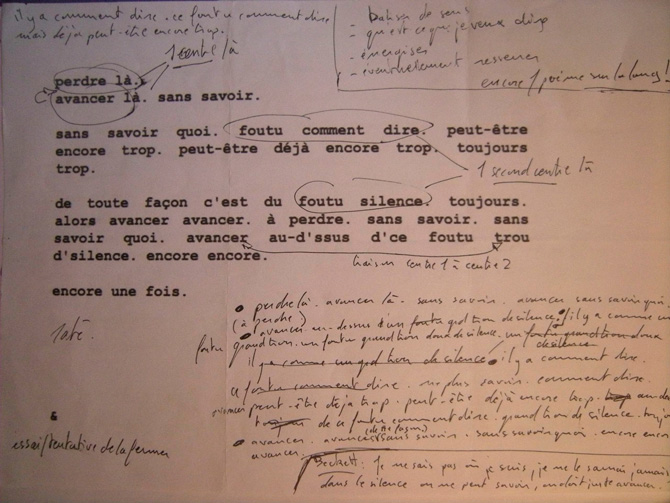 il y a comment dire. ce foutu comment dire
mais déjà peut-être encore trop.
- de sens
- qu'est ce que je veux dire
- énergiser
- éventuellement resserrer
encore 1 poème sur la langue!
1 centre là
perdre là.
avancer là. sans savoir.
sans savoir quoi. foutu comment dire. peut-être
encore trop. peut-être déjà encore trop. toujours
trop.
1 second centre là
de toute façon c'est du foutu silence. toujours.
alors avancer avancer. à perdre. sans savoir. sans
savoir quoi. avancer au-d'ssus d'ce foutu trou
d'silence. encore encore.
liaison centre 1 à centre 2
encore une fois.
perdre là. avancer là. sans savoir. avancer sans savoir quoi.
(à perdre)
avancer au-dessus d'un foutu grd trou de silence. il y a comme un
foutu grand trou. un foutu grand trou de silence. un foutu grand trou
de silence
il y a comme un grd trou de silence. il y a comment dire.
ce foutu comment dire. ne plus savoir. comment dire.
avancer peut-être déjà trop. peut-être déjà encore trop. au-dessus
de ce foutu comment dire. grand trou de silence.
avancer. avancer sans savoir. sans savoir quoi. encore encore
avancer.
&
essai/tentative de la fermer
Beckett: Je ne sais pas où je suis, je ne le saurai jamais
dans le silence on ne peut savoir, on doit juste avancer.